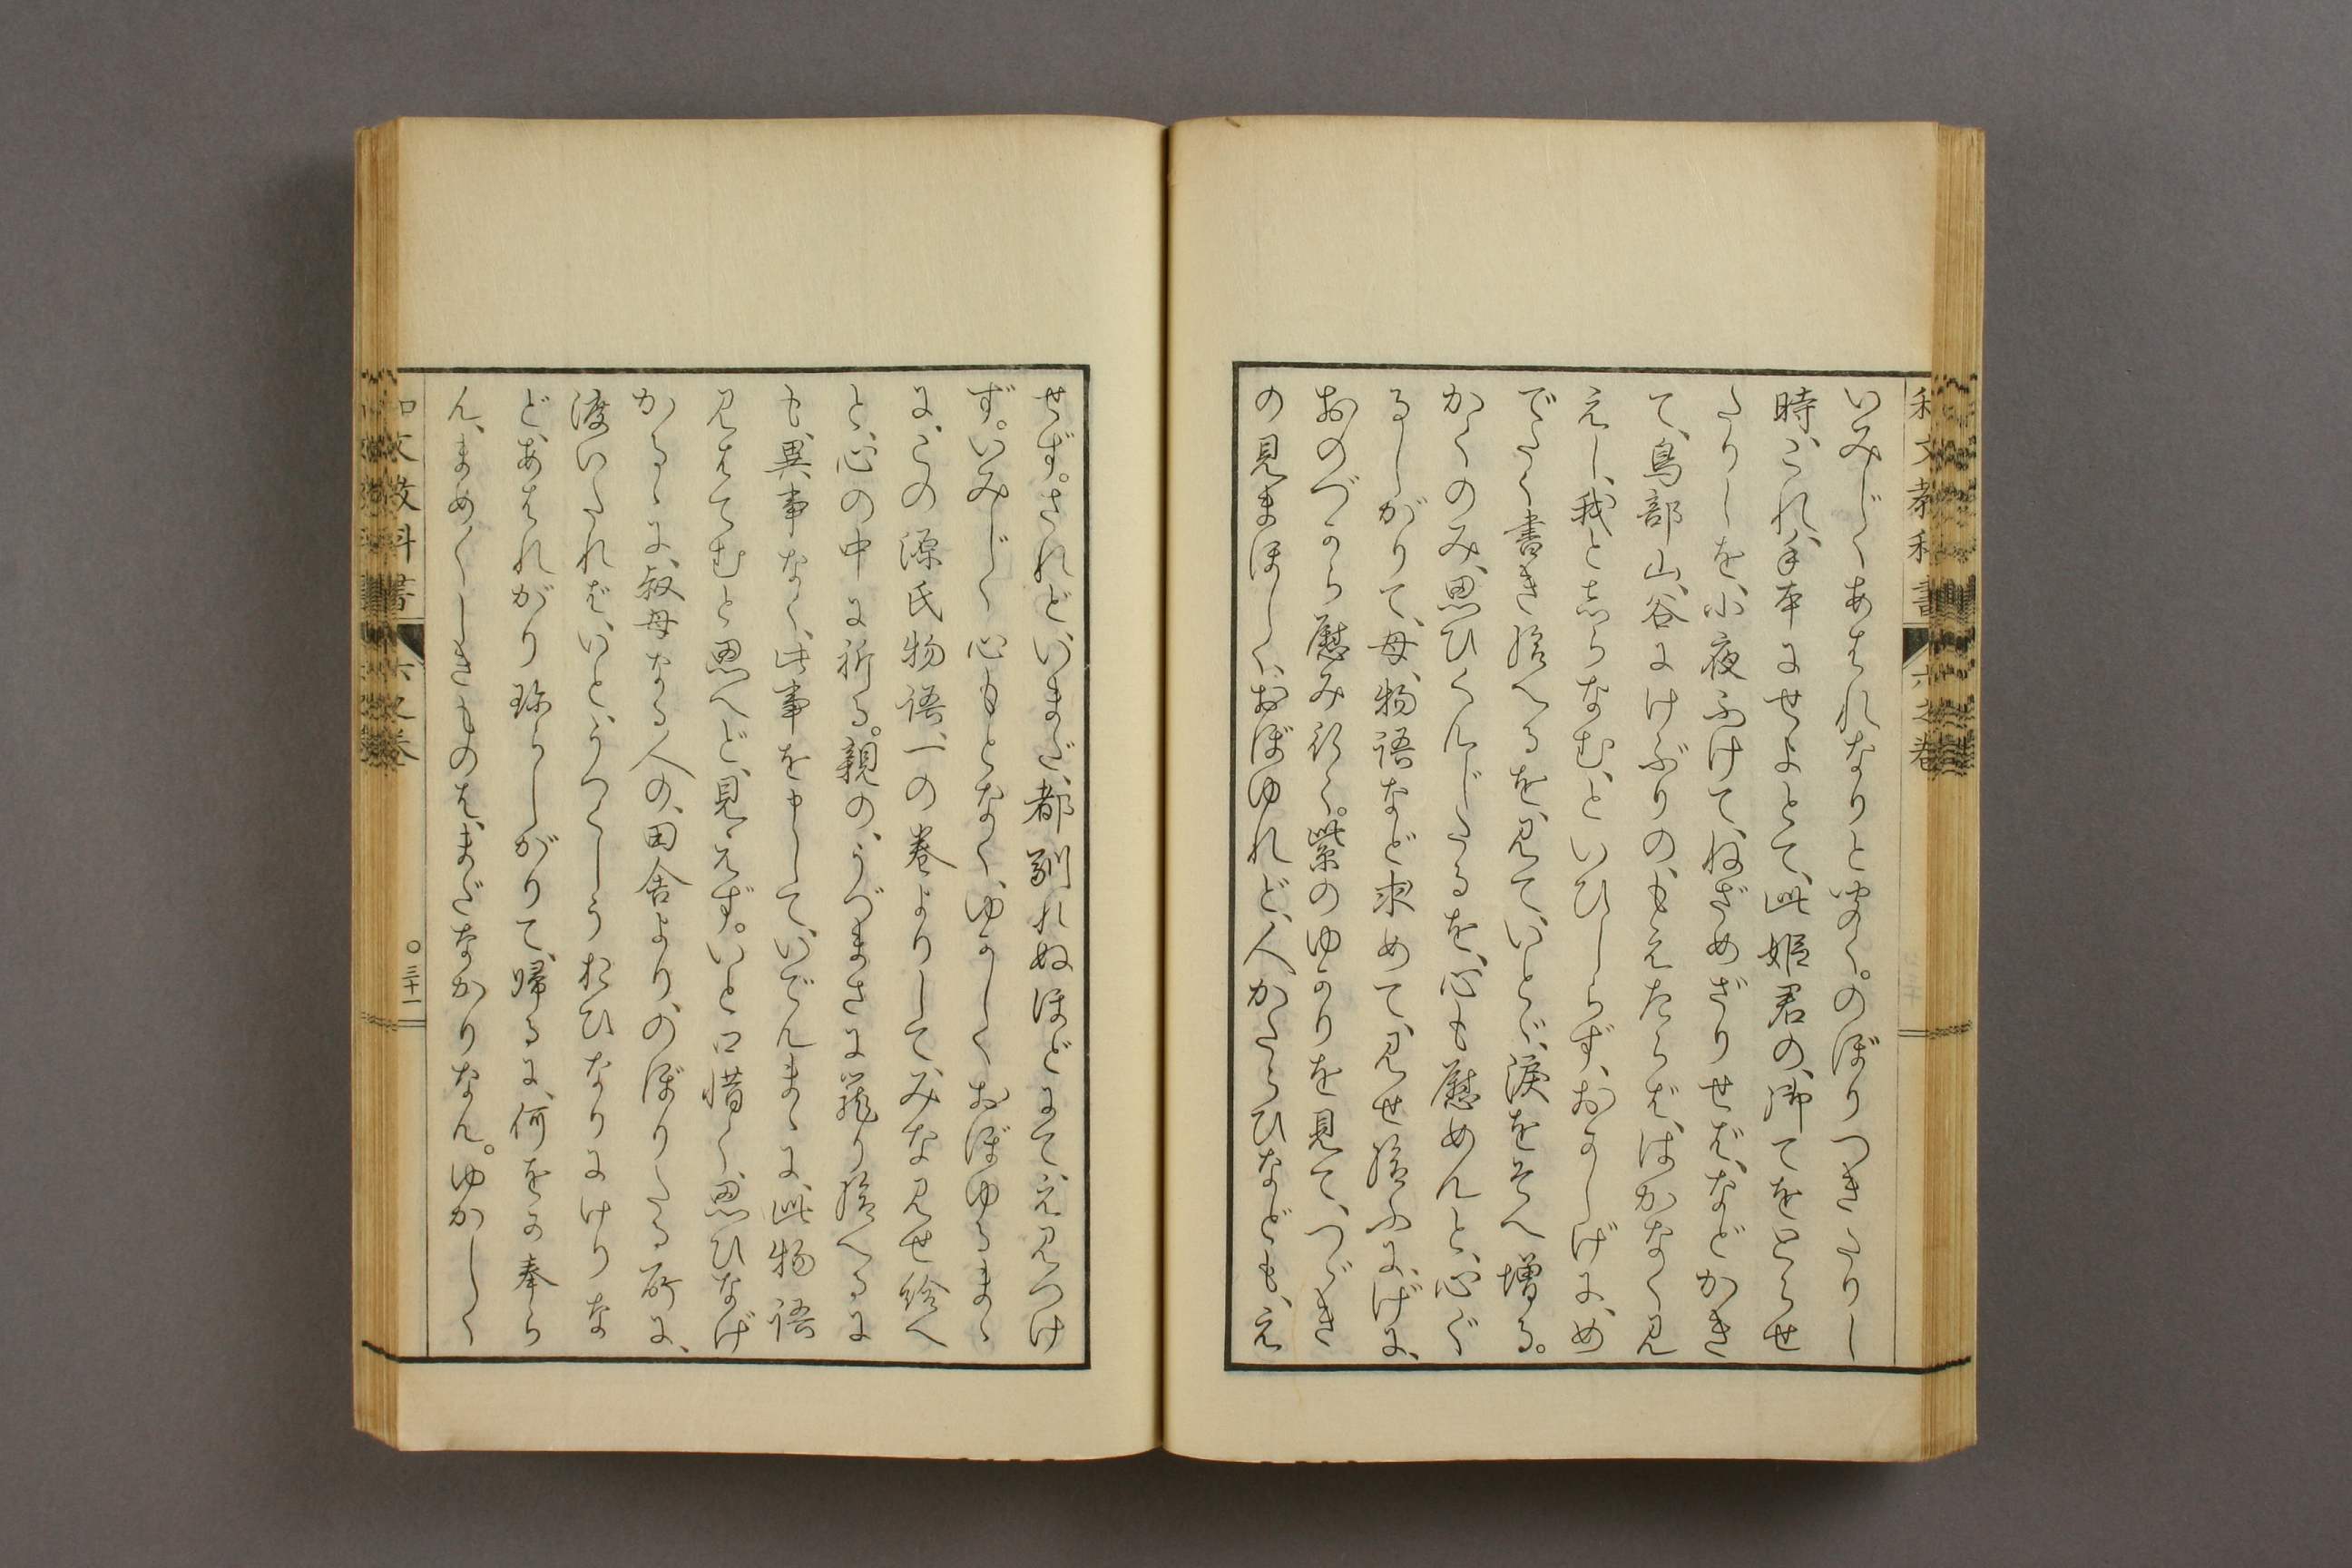 和文教科書 六之巻
いみじくあはれなりと聞く。のぼりつきたりし
時、これ手本にせよとて、此姫君の、御てをとらせ
たりしを、小夜ふけて、ねざめざりせば、などかき
て、鳥部山、谷にけぶりの、もえたらば、はかなく見
えし、我としらなむ、といひしらず、おかしげに、め
でたく書き給へるを、見て、いとゞ、涙をそへ増る。
かくのみ、思ひくんじたるを、心も慰めんと、心ぐ
るしがりて、母、物語など求めて、見せ給ふに、げに、
おのづから慰み行く。紫のゆかりを見て、つゞき
の見まほしく、おぼゆれど、人かたらひなども、え
せず。されど、いまだ、都馴れぬほどにて、え見つけ
ず。いみじく心もとなく、ゆかしくおぼゆるまゝ
に、この源氏物語、一の巻よりして、みな見せ給へ
と、心の中に祈る。親の、うづまさに籠り給へるに
も、異事なく、此事をもして、いでんまゝに、此物語
見はてむと思へど、見えず。いと口惜く、思ひなげ
かるゝに、叔母なる人の、田舎より、のぼりたる所に、
渡いたれば、いと、うつくしうおひなりにけりな
ど、あはれがり珍らしがりて、帰るに、何をか奉ら
ん、まめ〳〵しきものは、まだなかりなん。ゆかしく
和文教科書 六之巻 ○三十一